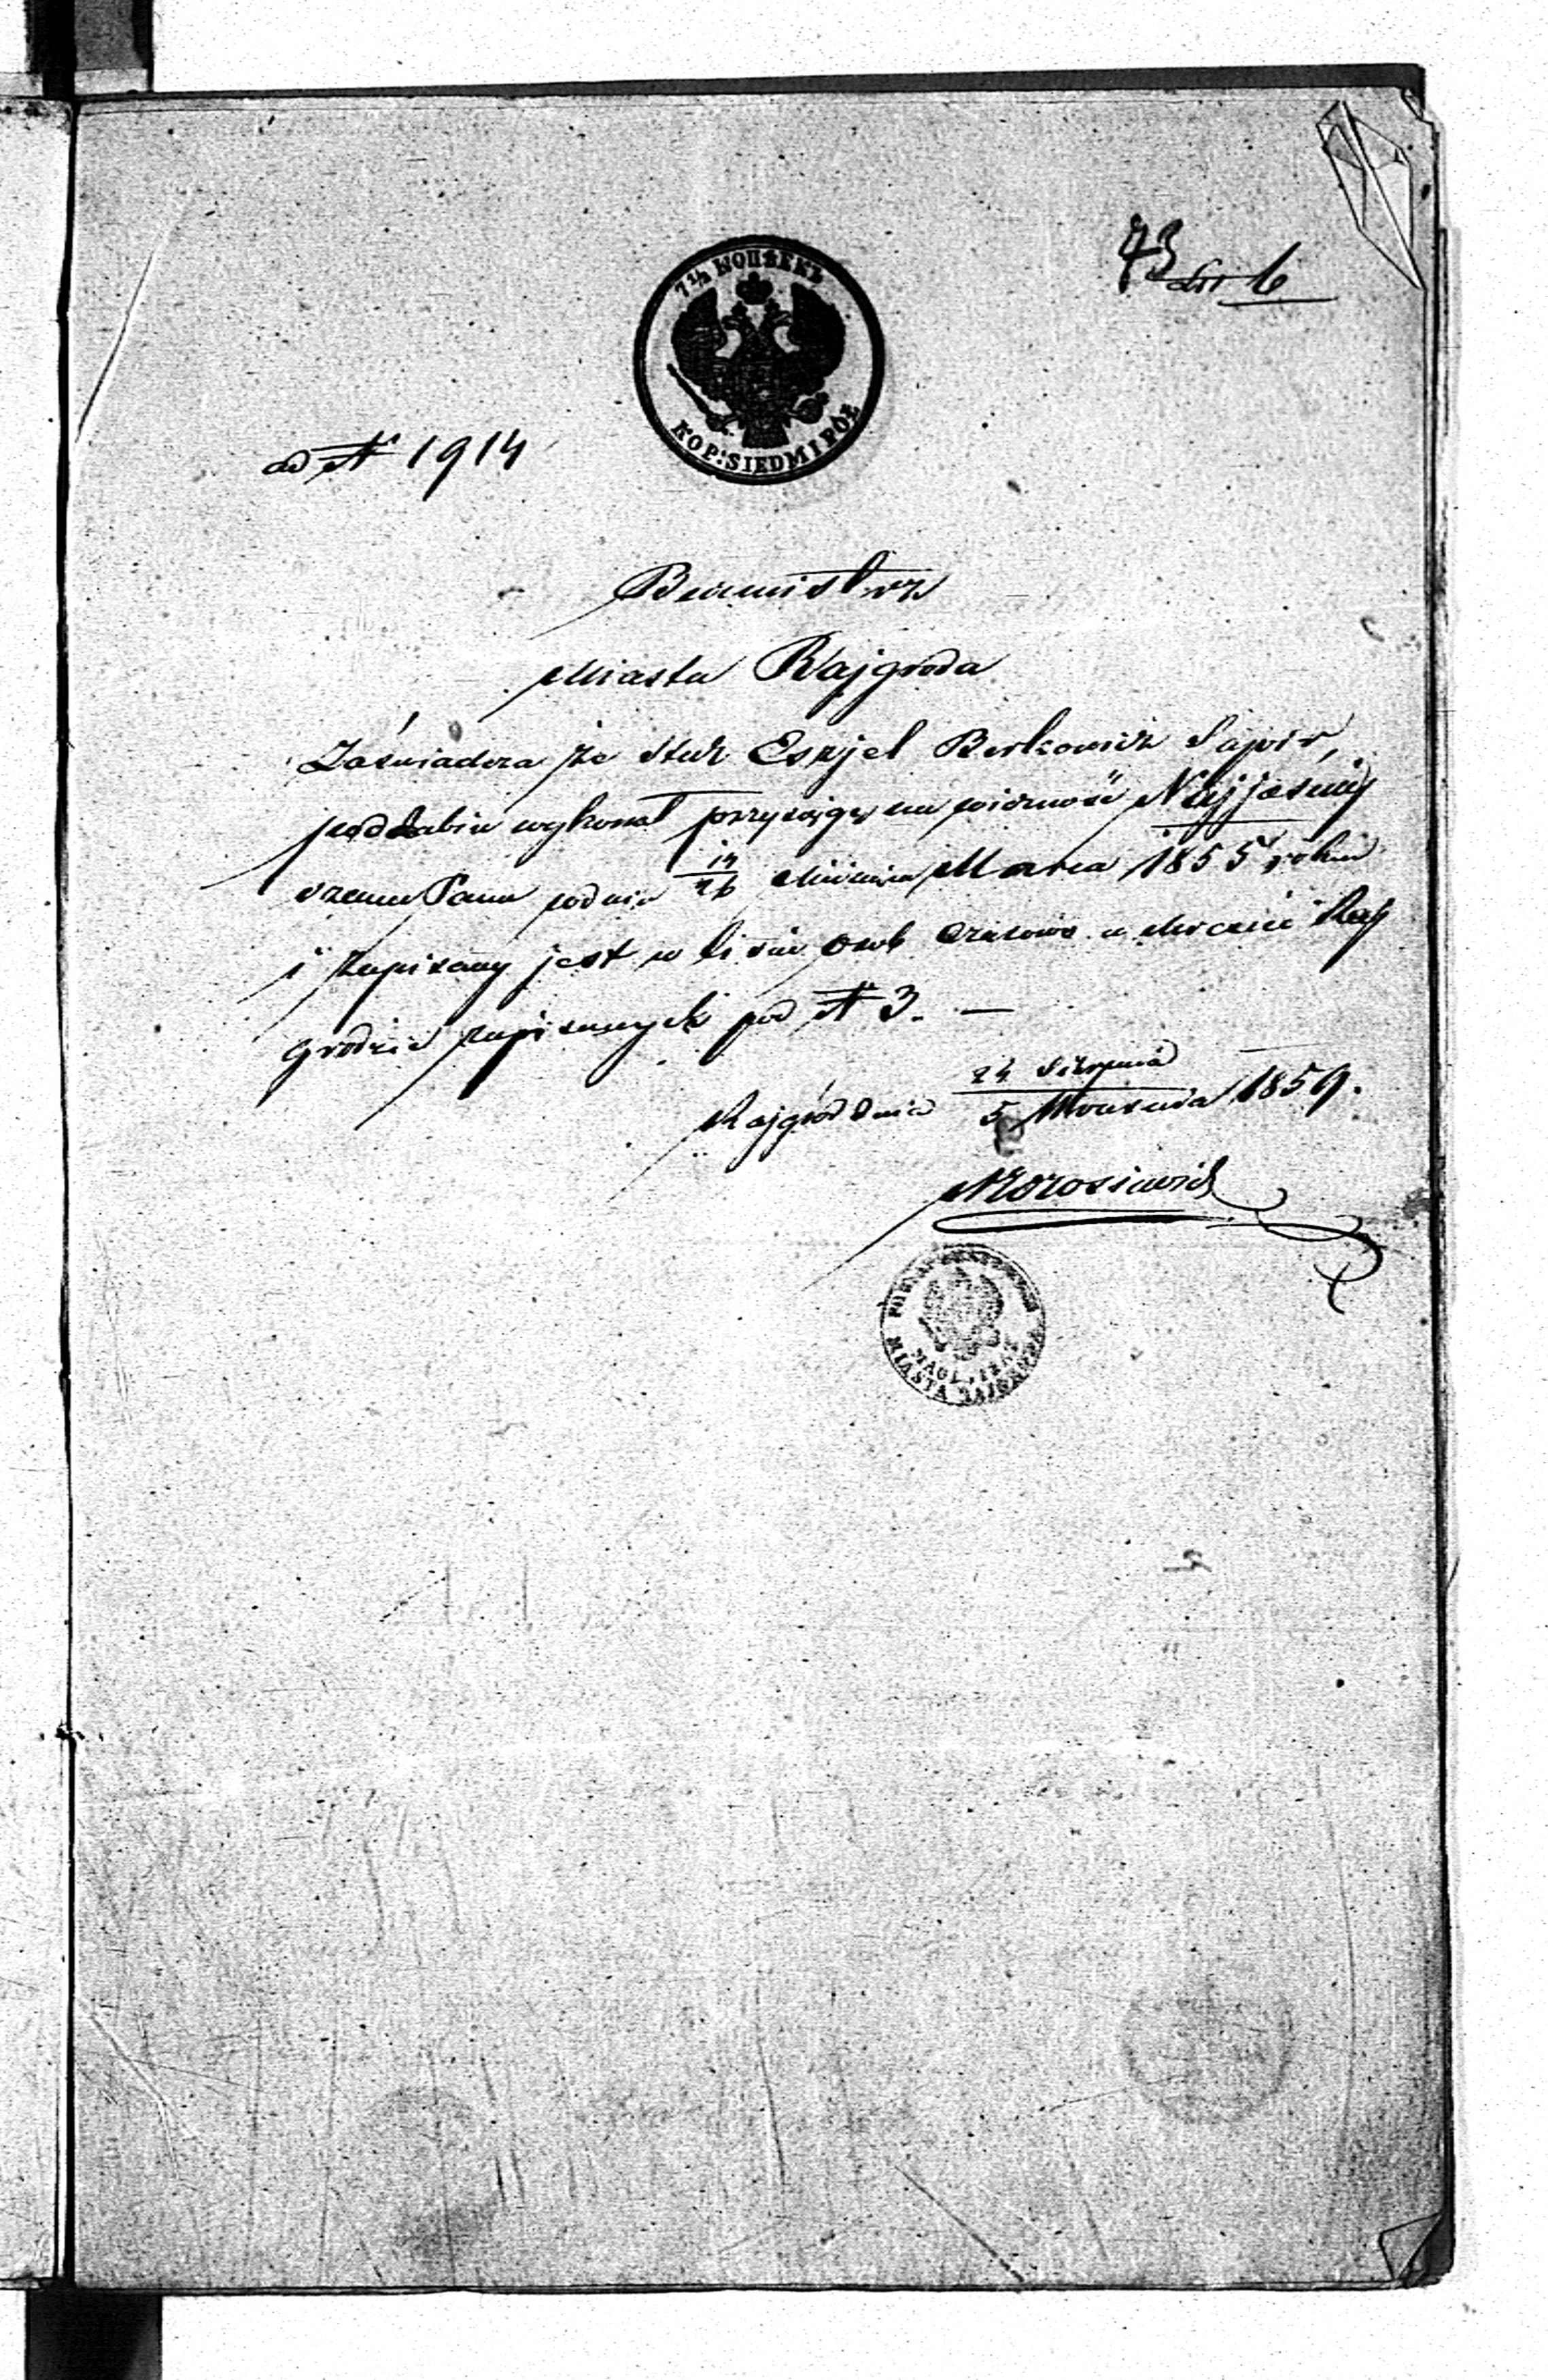 43 ... 6
7 1/2 КОПѢЕКЪ
KOP: SIEDM I PÓŁ
ad N 1914
Burmistrz
Miasta Rajgroda
Zaświadcza że Star Eszjel Berkowicz Sapir,
podRabin wykonał przysięgę na wierność Najjaśniej
szemu Panu pod dniem 14/26 Marca 1855 roku
i zapisany jest w liście osób czasowo w Mieście Raj
grodzie zapisanych pod N 3. —
Rajgród dnia 24 Sierpnia / 5 Września 1859.
MAGISTRAT
MIASTA RAJGRODA